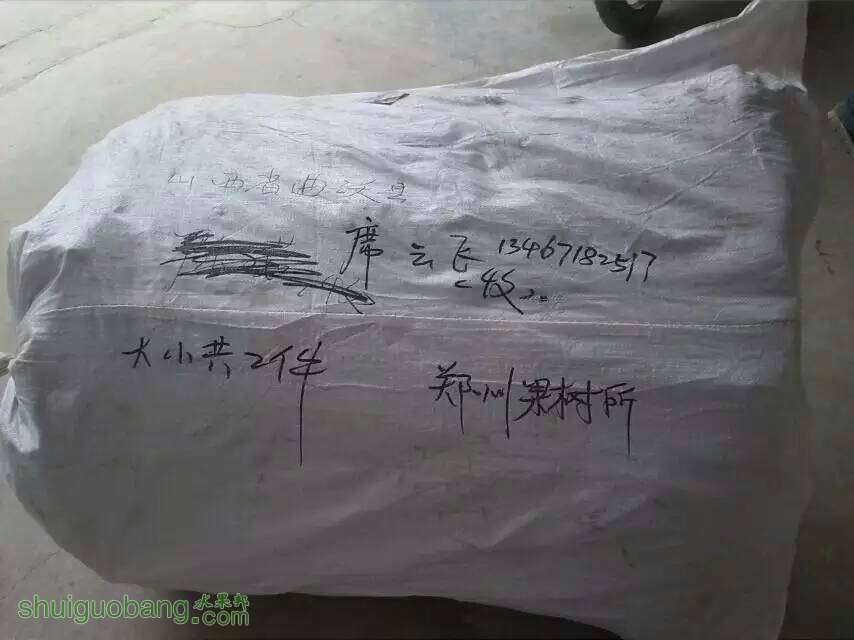 山西省曲沃县
席云飞 13467182517
收
大小共2件
郑州果树所
shuiguobang.com
水果邦